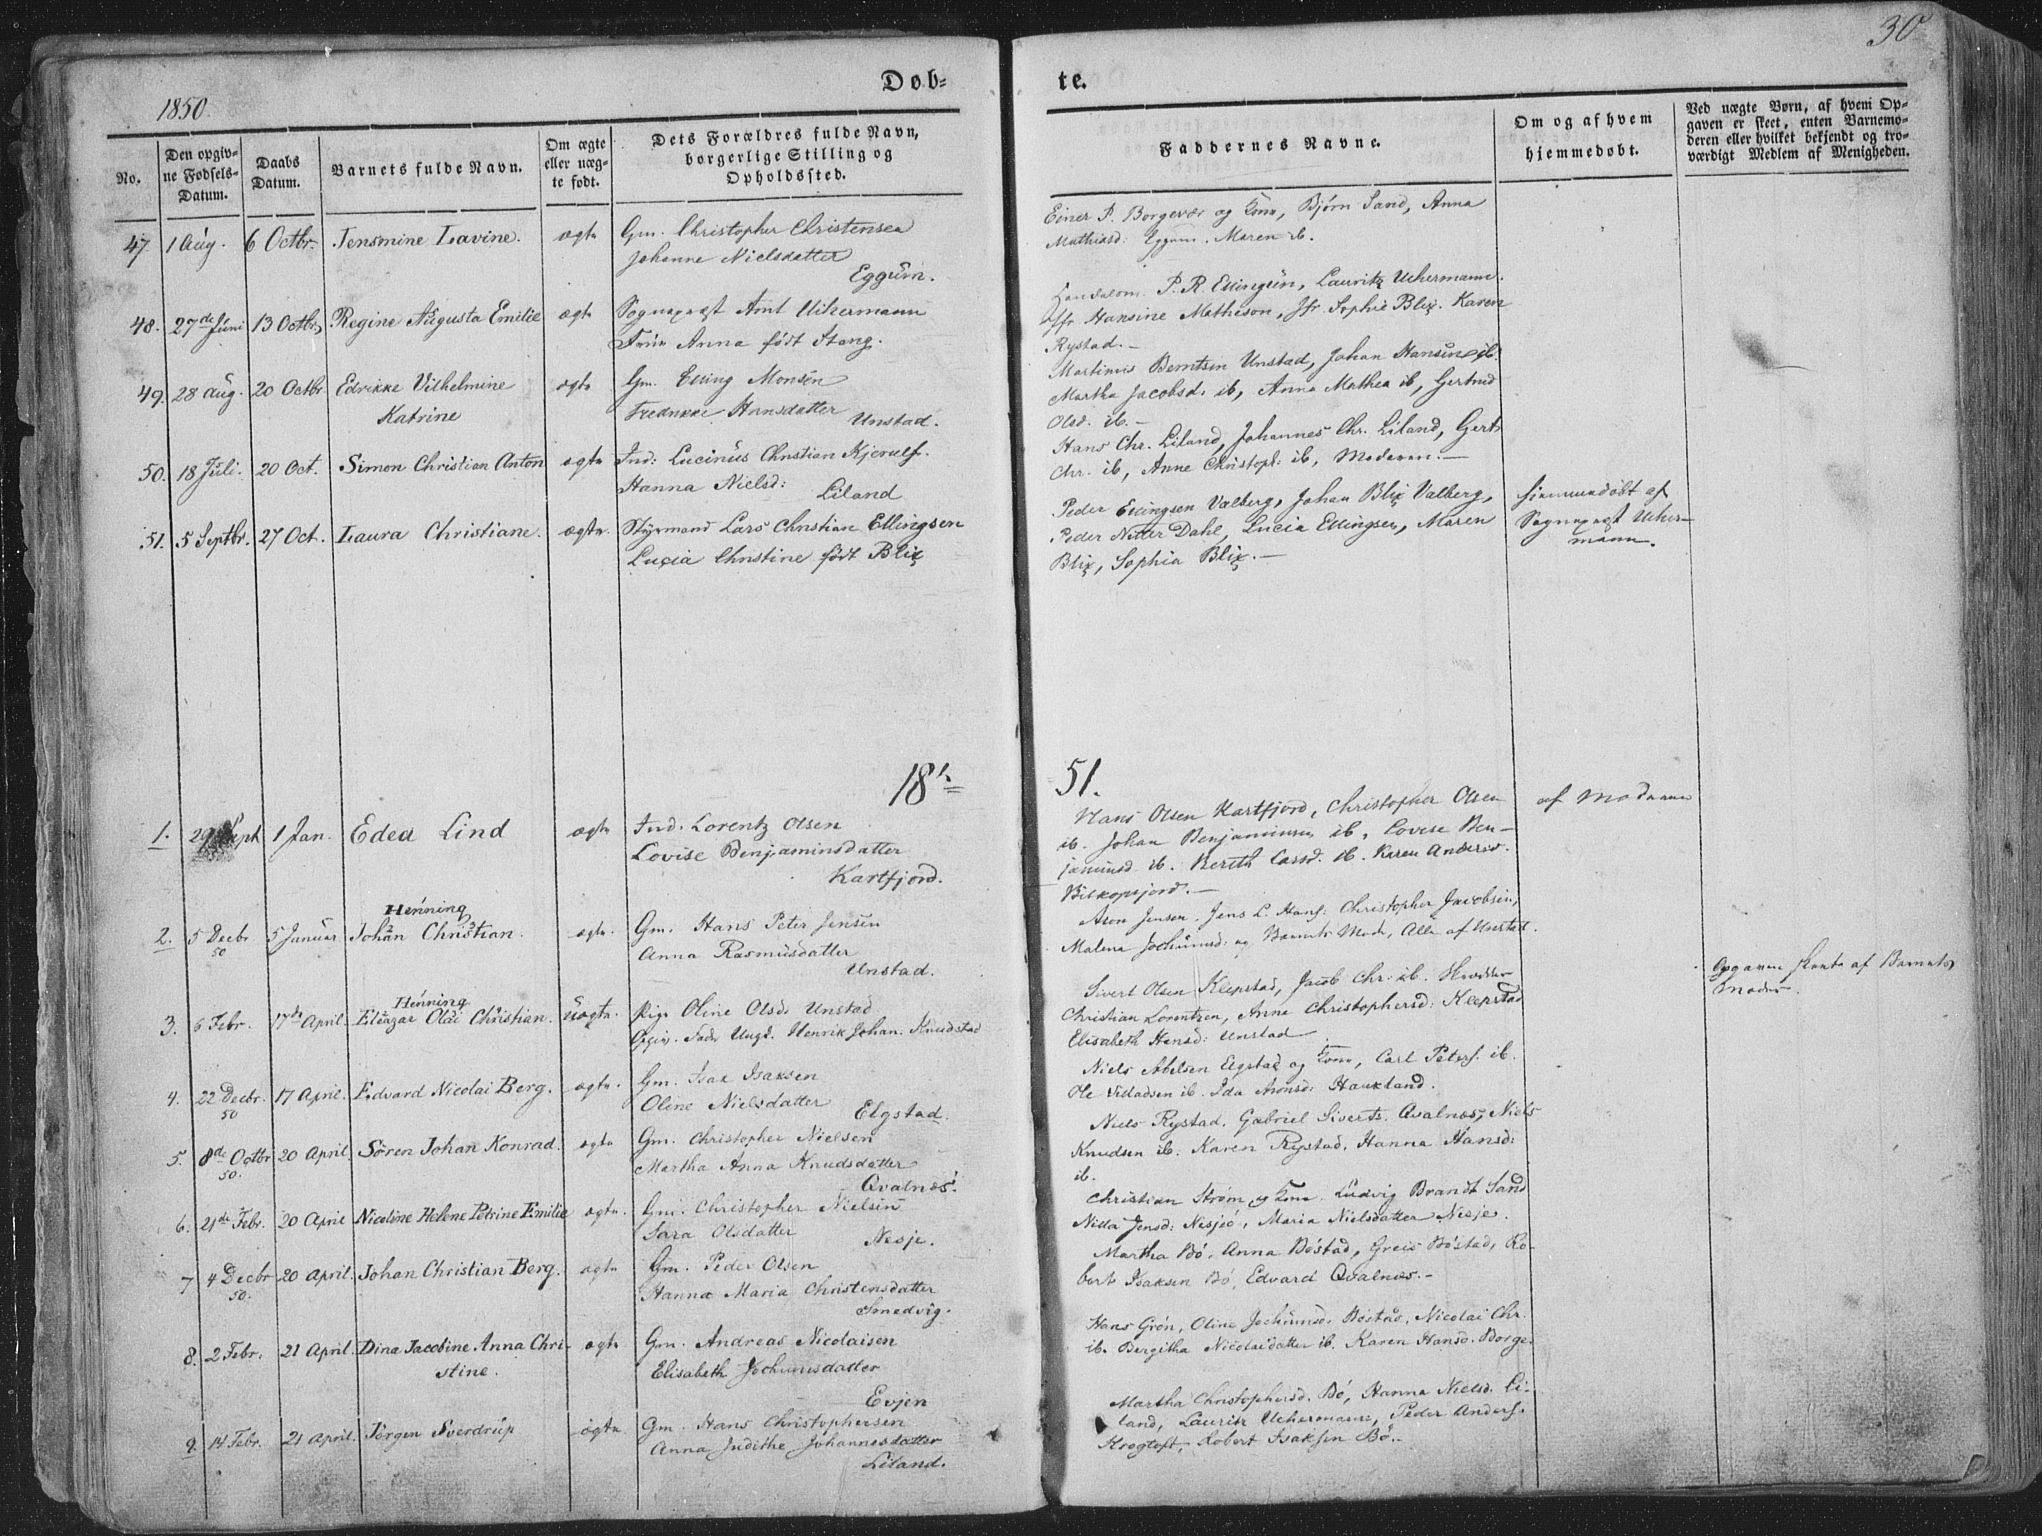 30
Døb=
te.
1850.
No.
Den opgiv-
ne Fødsels-
Datum.
Daabs
Datum.
Barnets fulde Navn.
Om ægte
eller uæg-
te født.
Dets Forældres fulde Navn,
borgerlige Stilling og
Opholdssted.
Faddernes Navne.
Om og af hvem
hjemmedøbt.
Ved uægte Børn, af hvem Op-
gaven er skeet, enten Barnemo-
deren eller hvilket bekjendt og tro-
værdigt Medlem af Menigheden.
47. 1 Aug. 6 Octbr. Jensmine Lavine. ægte Gm. Christopher Christensen
Johanne Nielsdatter
Eggum.
Einer P. Borgevær og Kone, Bjørn Sand, Anna
Mathiasd: Eggum. Maren ib.
48. 27de Juni 13 Octbr. Regine Augusta Emilie ægte Sognepræst Amt Uchermann
Frue Anna født Stang.
P. R. Ellingsen, Lauritz Uchermann.
Jfr Hansine Matheson, Jfr Sophie Blix. Karen
Rystad.-
49. 28 Aug. 20 Octbr Edrikke Vilhelmine ægte Gm. Elling Monsen
Katrine Fredrikke Hansdatter
Unstad.
Martinus Berntsen Unstad, Johan Hansen ib.
Martha Jacobsd. ib, Anna Mathea ib, Gertrud
Olsd. ib.-
50. 18 Juli. 20 Oct. Simon Christian Anton ægte Ind: Lucinus Christian Kjerulf.
Hanna Nielsd: Liland
Hans Chr. Liland, Johannes Chr. Liland, Gert
Chr. ib, Anne Christoph: ib, Moderen.-
51. 5 Septbr. 27 Oct. Laura Christiane. ægte. Styrmand Lars Christian Ellingsen
Lucia Christine født Blix
Peder Ellingsen Valberg, Johan Blix Valberg,
Peder Nitter Dahl, Lucia Ellingsen, Maren
Blix, Sophia Blix.-
Hjemmedøbt af
Sognepræst Ucher-
mann.
18
51.
1. 29 Sept 1 Jan. Edea Lind ægte Ind. Lorentz Olsen
Lovise Benjaminsdatter
Kartfjord.
Hans Olsen Kartfjord, Christopher Olsen
ib. Johan Benjaminsen ib, Lovise Ben-
jaminsd ib. Berith Larsd. ib. Karen Andersd.
Biskopsjord.-
af Moderen
Henning
2. 5 Decbr 5 Januar Johan Christian. ægte. Gm. Hans Peter Jensen
50 Anna Rasmusdatter
Unstad.
Aron Jensen. Jens L. Hans: Christopher Jacobsen,
Malena Jochumsd: og Barnets Moder, Alle af Unstad.
Henning
3. 6 Febr. 17de April. Eleazar Olai Christian. uægte. Pige Oline Olsd. Unstad
Opgiv. Fader Ungk. Henrik Johan. Knudstad
Sivert Olsen Klepstad, Jacob Chr. ib.
Christian Lorentzen, Anne Christophersd: Klepstad
Elisabeth Hansd: Unstad
Opgaven skeete af Barnets
Moder.
4. 22 Decbr. 17 April. Edvard Nicolai Berg. ægte. Gm. Isak Isaksen
50 Oline Nielsdatter
Elgstad.
Niels Abelsen Elgstad og Kone, Carl Peters. ib.
Ole ib. Ida Aronsd: Haukland.
5. 8de Octbr 20 April Søren Johan Konrad. ægte Gm. Christopher Nielsen
50. Martha Anna Knudsdatter
Qvalnes.
Niels Rystad. Gabriel Siverts. Qvalnes, Niels
Knudsen ib. Karen Rystad, Hanna Hansd:
ib.
6. 21de Febr. 20 April Nicoline Helene Petrine Emilie ægte. Gm. Christopher Nielsen
Sara Olsdatter
Nesje.
Christian Strøm og Kone. Ludvig Brandt Sand
Nilla Jensd: Nesje, Maria Nielsdatter Nesje.
7 4 Decbr 20 April. Johan Christian Berg. ægte Gm. Peder Olsen
50. Hanna Maria Christensdatter
Smedvig.
Martha Bø. Anna Bøstad, Greis Bøstad, Ro-
bert Isaksen Bø, Edvard Qvalnes.-
8. 2 Febr. 21 April. Dina Jacobine Anna Chri- ægte Gm. Andreas Nicolaisen
stine. Elisabeth Jochumsdatter
Evjen
Hans Grøn, Oline Jochumsd. Bøstad, Nicolai Chr.
ib. Bergitha Nicolaidatter ib. Karen Hansd. Borge.
9. 14 Febr. 21 April. Jørgen Sverdrup ægte Gm. Hans Christophersen
Anna Judithe Johannesdatter
Liland.
Martha Christophersd. Bø, Hanna Nielsd. Li-
land, Lauritz Uchermann, Peder Anders.
Krogtoft, Robert Isaksen Bø.-